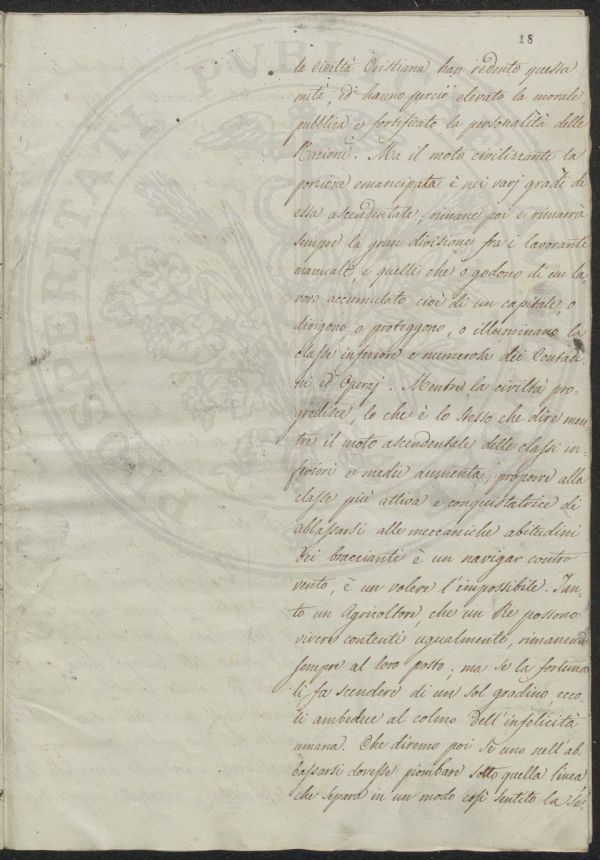 18
la Civiltà Cristiana han redento questa
metà, ed hanno perciò elevato la morale
pubblica e fortificato la personalità delle
Nazioni. Ma il moto civilizzante la
porzione emancipata è nei varj gradi di
essa ascendentale, rimane poi e rimarrà
sempre la gran divisione fra i lavoranti
manuali, e quelli che o godono di un la-
voro accumulato cioè di un capitale, o
dirigono, o proteggono, o illuminano la
classe inferiore e numerosa dei Contadi-
ni ed Operaj. Mentre la civiltà pro-
gredisce, lo che è lo stesso che dire men-
tre il moto ascendentale delle classi in-
feriori e medie aumenta, proporre alla
classe più attiva e conquistatrice di
abbassarsi alle meccaniche abitudini
dei braccianti è un navigar contro
vento, è un volere l'impossibile. Tan-
to un Agricoltore, che un Re possono
vivere contenti ugualmente, rimanendo
sempre al loro posto; ma se la fortuna
li fa scendere di un sol gradino ecco-
li ambedue al colmo dell'infelicità
umana. Che diremo poi se uno nell'ab-
bassarsi dovesse piombare sotto quella linea
che separa in un modo così sentito la So-
PROSPERITATI PVBLI